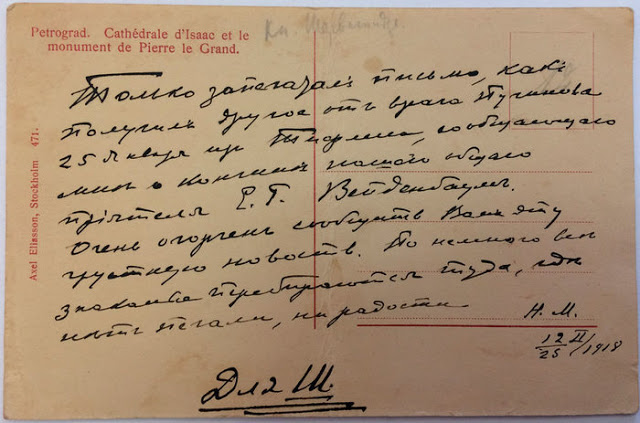 Petrograd. Cathédrale d'Isaac et le
monument de Pierre le Grand.
Кн.
Axel Eliasson, Stockholm 471.
Только запечаталъ письмо, какъ
получилъ другое отъ врача
25 Января изъ Тифлиса, сообщающаго
мнѣ о кончинѣ нашего общаго
пріятеля Е. Г. Вейденбаумъ.
Очень огорченъ сообщить Вамъ эту
грустную новость. По немногу всѣ
знакомые перебираются туда, гдѣ
нѣтъ печали, ни радости
Н. М.
12/25 II/1918
Для Ш.